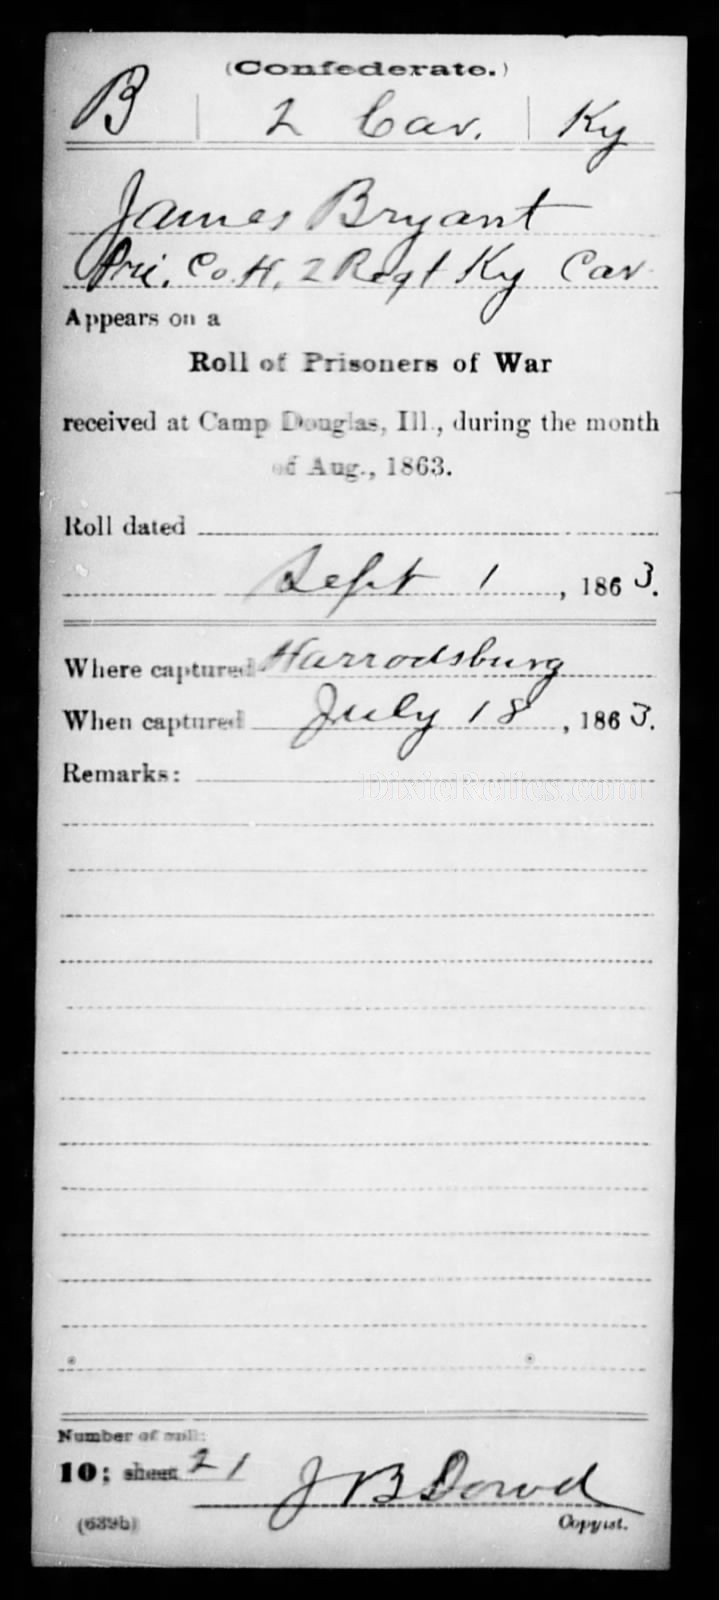 (Confederate.)
B | 2 Cav. | Ky
James Bryant
Pri. Co. H, 2 Regt Ky Cav.
Appears on a
Roll of Prisoners of War
received at Camp Douglas, Ill., during the month
of Aug., 1863.
Roll dated
Sept 1, 1863.
Where captured Harrodsburg
When captured July 18, 1863.
Remarks:
DixieRelics.com
Number of roll:
10; sheet 21
J B Dowd
(639b) Copyist.